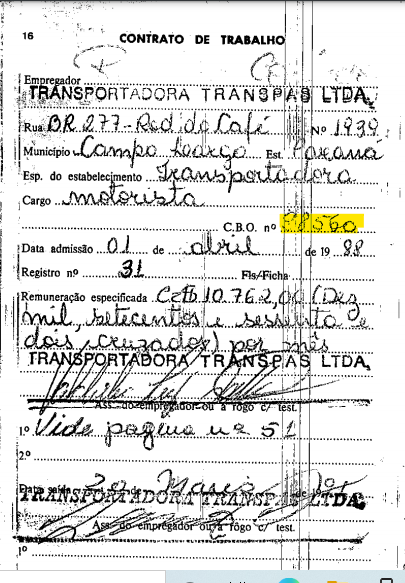 16
CONTRATO DE TRABALHO
Empregador
TRANSPORTADORA TRANSPAS LTDA.
Rua BR 277 - Rod. do Café Nº 1939
Município Campo Largo Est. Paraná
Esp. do estabelecimento Transportadora
Cargo motorista
C.B.O. nº 98560
Data admissão 01 de abril de 1988
Registro nº 31 Fls/Ficha
Remuneração especificada Cz$ 10.762,00 (Dez
mil, setecentos e sessenta e
dois cruzados) por mês
TRANSPORTADORA TRANSPAS LTDA.
Ass. do empregador ou a rôgo c/ test.
1º Vide pagina nº 51
2º
Data saída de Março de 19
TRANSPORTADORA TRANSPAS LTDA.
Ass. do empregador ou a rôgo c/ test.
1º